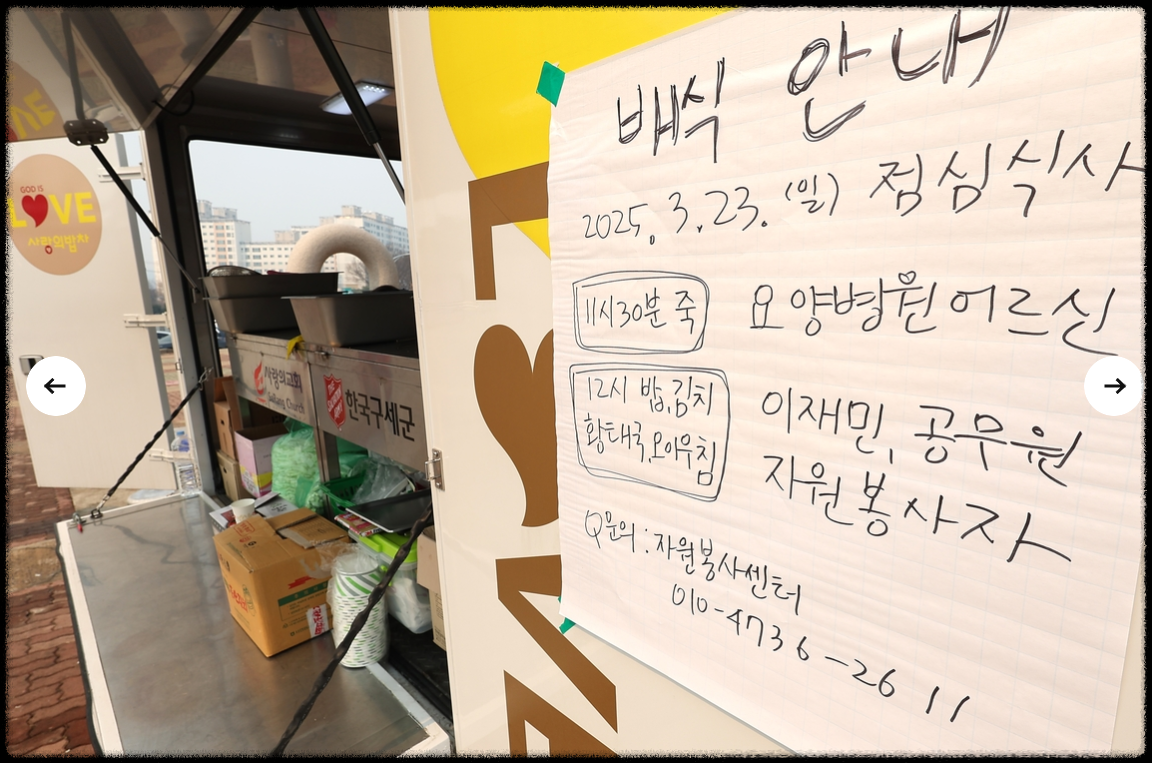 GOD IS
L❤VE
사랑의밥차
사랑의교회
SaRang Church
한국구세군
배식 안내
2025. 3. 23. (일) 점심식사
11시30분 죽
요양병원 어르신
12시 밥,김치
황태국,오이무침
이재민, 공무원
자원봉사자
Q문의 : 자원봉사센터
010-4736-2611